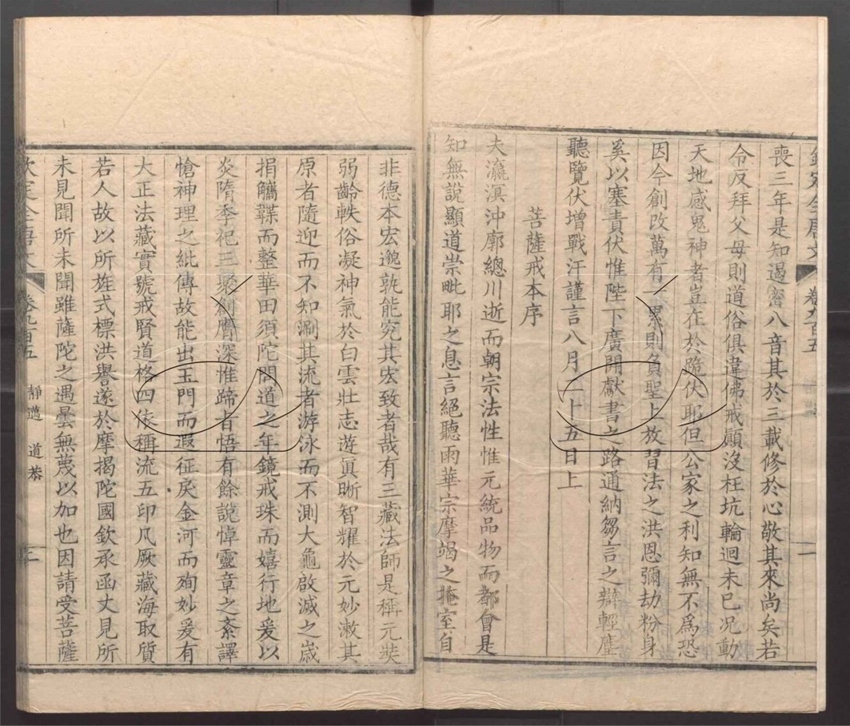 喪三年是知遏密八音其於三載修於心敬其來尚矣若
令反拜父母則道俗俱違佛戒顛沒枉坑輪迴未已况動
天地感鬼神者豈在於跪伏耶但公家之利知無不為恐
因今創改萬有 累則負聖上放習法之洪恩彌劫粉身
奚以塞責伏惟陛下廣開獻書之路通納芻言之辯輕塵
聽覽伏增戰汗謹言八月二十五日上
菩薩戒本序
夫瀛溟沖廓總川逝而朝宗法性惟元統品物而都會是
知無說顯道崇毗耶之息言絕聽雨華宗摩竭之掩室自
欽定全唐文
卷九百五
靜邁
道恭
二
非德本宏邈孰能究其宏致者哉有三藏法師是稱元奘
弱齡軼俗凝神氣於白雲壯志遊真晰智耀於元妙漱其
原者隨迎而不知涸其流者游泳而不測大龜啟滅之歲
捐觿韘而整華田須陀問道之年鏡戒珠而嬉行地爰以
炎隋季祀三聚創膺深惟蹄者悟有餘說悼靈章之紊譯
愴神理之紕傳故能出玉門而遐征戾金河而殉妙爰有
大正法藏實號戒賢道格四依稱流五印凡厥藏海取質
若人故以所旌式標洪譽遂於摩揭陀國欽承函丈見所
未見聞所未聞雖薩陀之遇曇無蔑以加也因請受菩薩
欽定全唐文
卷九百五
靜邁
道恭
二